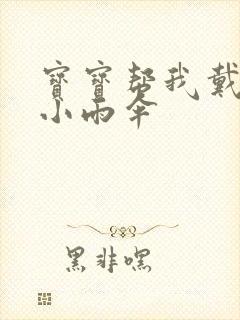 寶寶帮我戴
小雨伞
黑非嘿